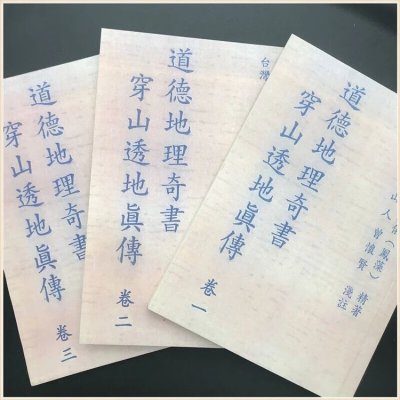 道德地理奇書
穿山透地眞傳
卷一
台(鳳藻)
山人曾懷賢
精著
淺註
台灣
道德地理奇書
穿山透地眞傳
卷二
道德地理奇書
穿山透地眞傳
卷三